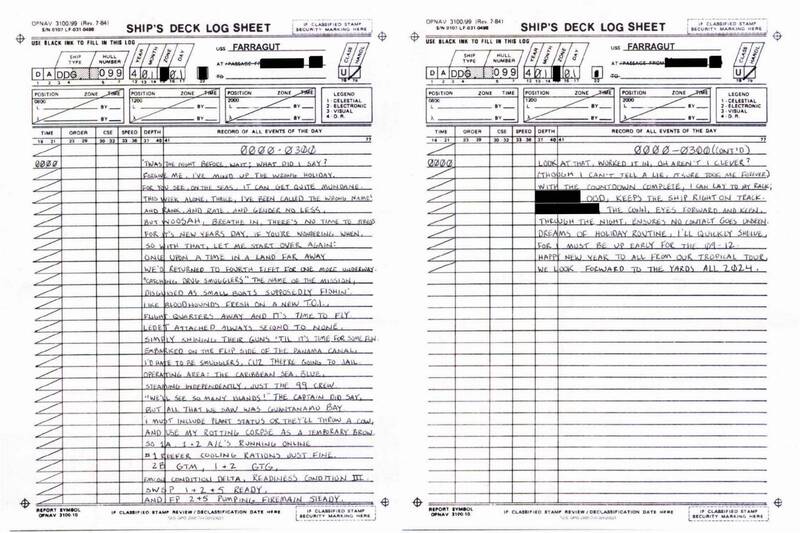 OPNAV 3100/99 (Rev. 7-84)
S/N 0107-LF-031-0498
SHIP'S DECK LOG SHEET
IF CLASSIFIED STAMP
SECURITY MARKING HERE
USE BLACK INK TO FILL IN THIS LOG
SHIP TYPE
HULL NUMBER
YEAR
MONTH
ZONE
DAY
USS FARRAGUT
AT PASSAGE FROM
TO
CLASS
HANDL
DA DDG 099
40 1 01
U
POSITION ZONE TIME
POSITION ZONE TIME
POSITION ZONE TIME
LEGEND
0800
1200
2000
BY
BY
BY
BY
BY
BY
1 - CELESTIAL
2 - ELECTRONIC
3 - VISUAL
4 - D. R.
TIME ORDER CSE SPEED DEPTH RECORD OF ALL EVENTS OF THE DAY
0000-0300
0000 'TWAS THE NIGHT BEFORE, WAIT; WHAT DID I SAY?
FORGIVE ME, I'VE MIXED UP THE WRONG HOLIDAY.
FOR YOU SEE, ON THE SEAS, IT CAN GET QUITE MUNDANE.
THIS WEEK ALONE, THRICE, I'VE BEEN CALLED THE WRONG NAME!
AND RANK, AND RATE, AND GENDER NO LESS,
BUT WOOSAH, BREATHE IN, THERE'S NO TIME TO
FOR IT'S NEW YEARS DAY, IF YOU'RE WONDERING WHEN.
SO WITH THAT, LET ME START OVER AGAIN:
ONCE UPON A TIME IN A LAND FAR AWAY
WE'D RETURNED TO FOURTH FLEET FOR ONE MORE UNDERWAY.
"CATCHING DRUG SMUGGLERS" THE NAME OF THE MISSION,
DISGUISED AS SMALL BOATS SUPPOSEDLY FISHIN'.
LIKE BLOODHOUNDS FRESH ON A NEW T.O.I.,
FLIGHT QUARTERS AWAY AND IT'S TIME TO FLY.
LEDET ATTACHED ALWAYS SECOND TO NONE.
SIMPLY SHINING THEIR GUNS 'TIL IT'S TIME FOR SOME FUN.
EMBARKED ON THE FLIP SIDE OF THE PANAMA CANAL,
I'D HATE TO BE SMUGGLERS, CUZ THEY'RE GOING TO JAIL.
OPERATING AREA: THE CARIBBEAN SEA, BLUE,
STEAMING INDEPENDENTLY, JUST THE 99 CREW.
"WE'LL SEE SO MANY ISLANDS!" THE CAPTAIN DID SAY,
BUT ALL THAT WE SAW WAS GUANTANAMO BAY
I MUST INCLUDE PLANT STATUS OR THEY'LL THROW A COW,
AND USE MY ROTTING CORPSE AS A TEMPORARY BROW.
SO 1A, 1+2 A/C'S RUNNING ONLINE
#1 REEFER COOLING RATIONS JUST FINE.
2B GTM, 1+2 GTG,
EMCON CONDITION DELTA, READINESS CONDITION III.
SWSP 1+2+5 READY,
AND FP 2+5 PUMPING FIREMAIN STEADY.
REPORT SYMBOL
OPNAV 3100-10
IF CLASSIFIED STAMP REVIEW / DECLASSIFICATION DATE HERE
IF CLASSIFIED STAMP
SECURITY MARKING HERE
OPNAV 3100/99 (Rev. 7-84)
S/N 0107-LF-031-0498
SHIP'S DECK LOG SHEET
IF CLASSIFIED STAMP
SECURITY MARKING HERE
USE BLACK INK TO FILL IN THIS LOG
SHIP TYPE
HULL NUMBER
YEAR
MONTH
ZONE
DAY
USS FARRAGUT
AT PASSAGE FROM
TO
CLASS
HANDL
DA DDG 099
40 1 01
U
POSITION ZONE TIME
POSITION ZONE TIME
POSITION ZONE TIME
LEGEND
0800
1200
2000
BY
BY
BY
BY
BY
BY
1 - CELESTIAL
2 - ELECTRONIC
3 - VISUAL
4 - D. R.
TIME ORDER CSE SPEED DEPTH RECORD OF ALL EVENTS OF THE DAY
0000-0300 (CONT'D)
0000 LOOK AT THAT, WORKED IT IN, OH AREN'T I CLEVER?
(THOUGH I CAN'T TELL A LIE, IT SURE TOOK ME FOREVER)
WITH THE COUNTDOWN COMPLETE, I CAN LAY TO MY RACK;
OOD, KEEPS THE SHIP RIGHT ON TRACK.
THE CONN, EYES FORWARD AND KEEN,
THROUGH THE NIGHT, ENSURES NO CONTACT GOES UNSEEN.
DREAMS OF HOLIDAY ROUTINE, I'LL QUICKLY SHELVE,
FOR I MUST BE UP EARLY FOR THE 09-12.
HAPPY NEW YEAR TO ALL FROM OUR TROPICAL TOUR,
WE LOOK FORWARD TO THE YARDS ALL 2024.
REPORT SYMBOL
OPNAV 3100-10
IF CLASSIFIED STAMP REVIEW / DECLASSIFICATION DATE HERE
IF CLASSIFIED STAMP
SECURITY MARKING HERE